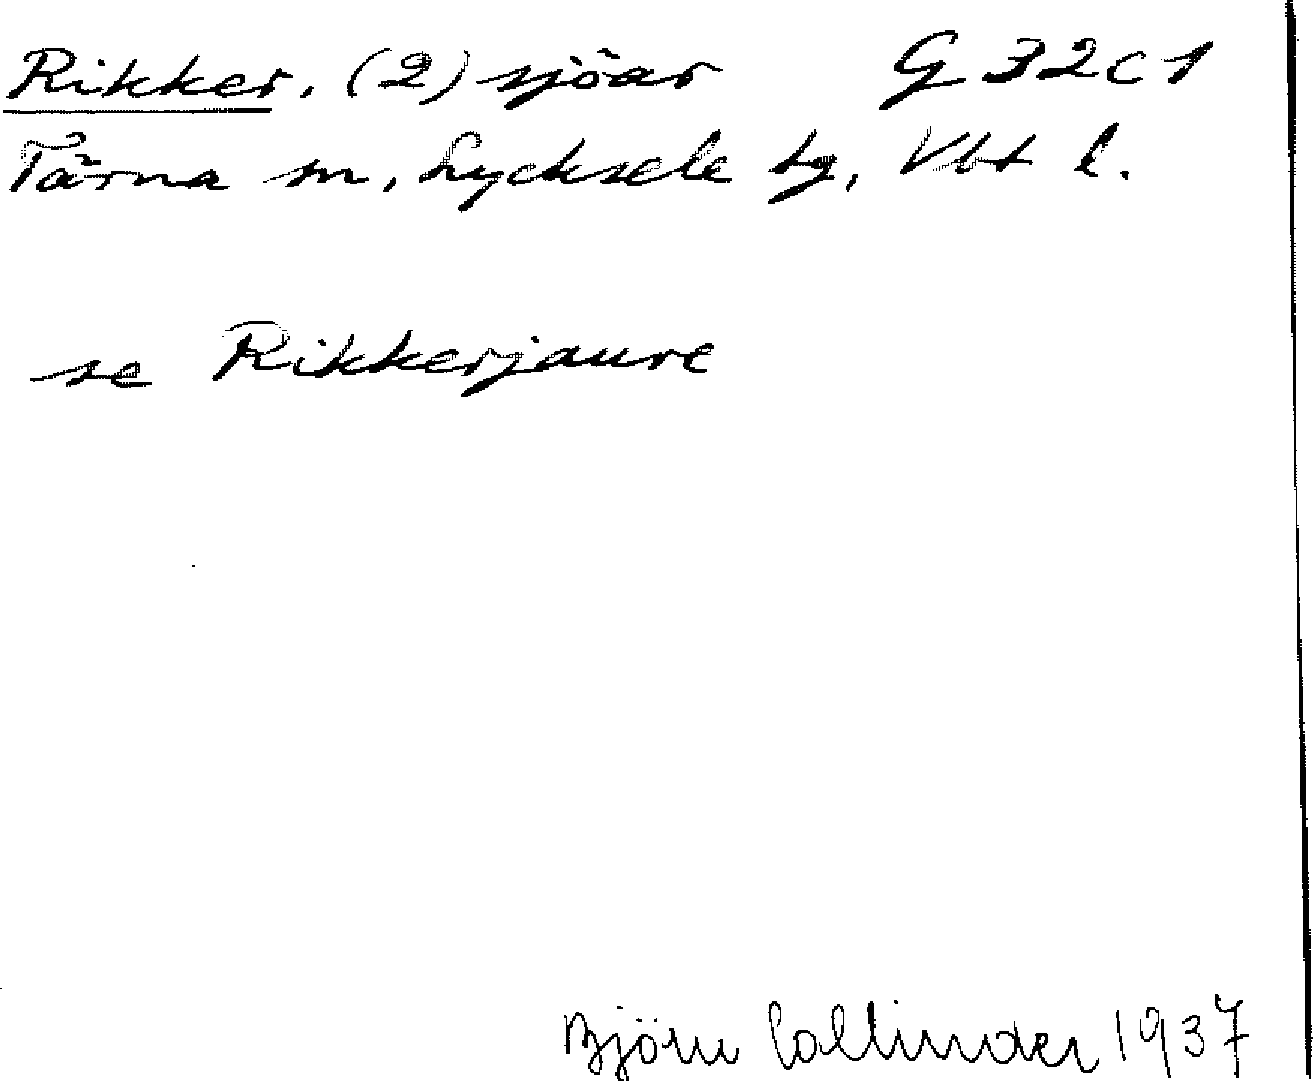 Rikker, (2) sjöar G 32c1
Tärna sn, Lycksele tg, Vbt l.
se Rikkerjaure
Björn Collinder 1937